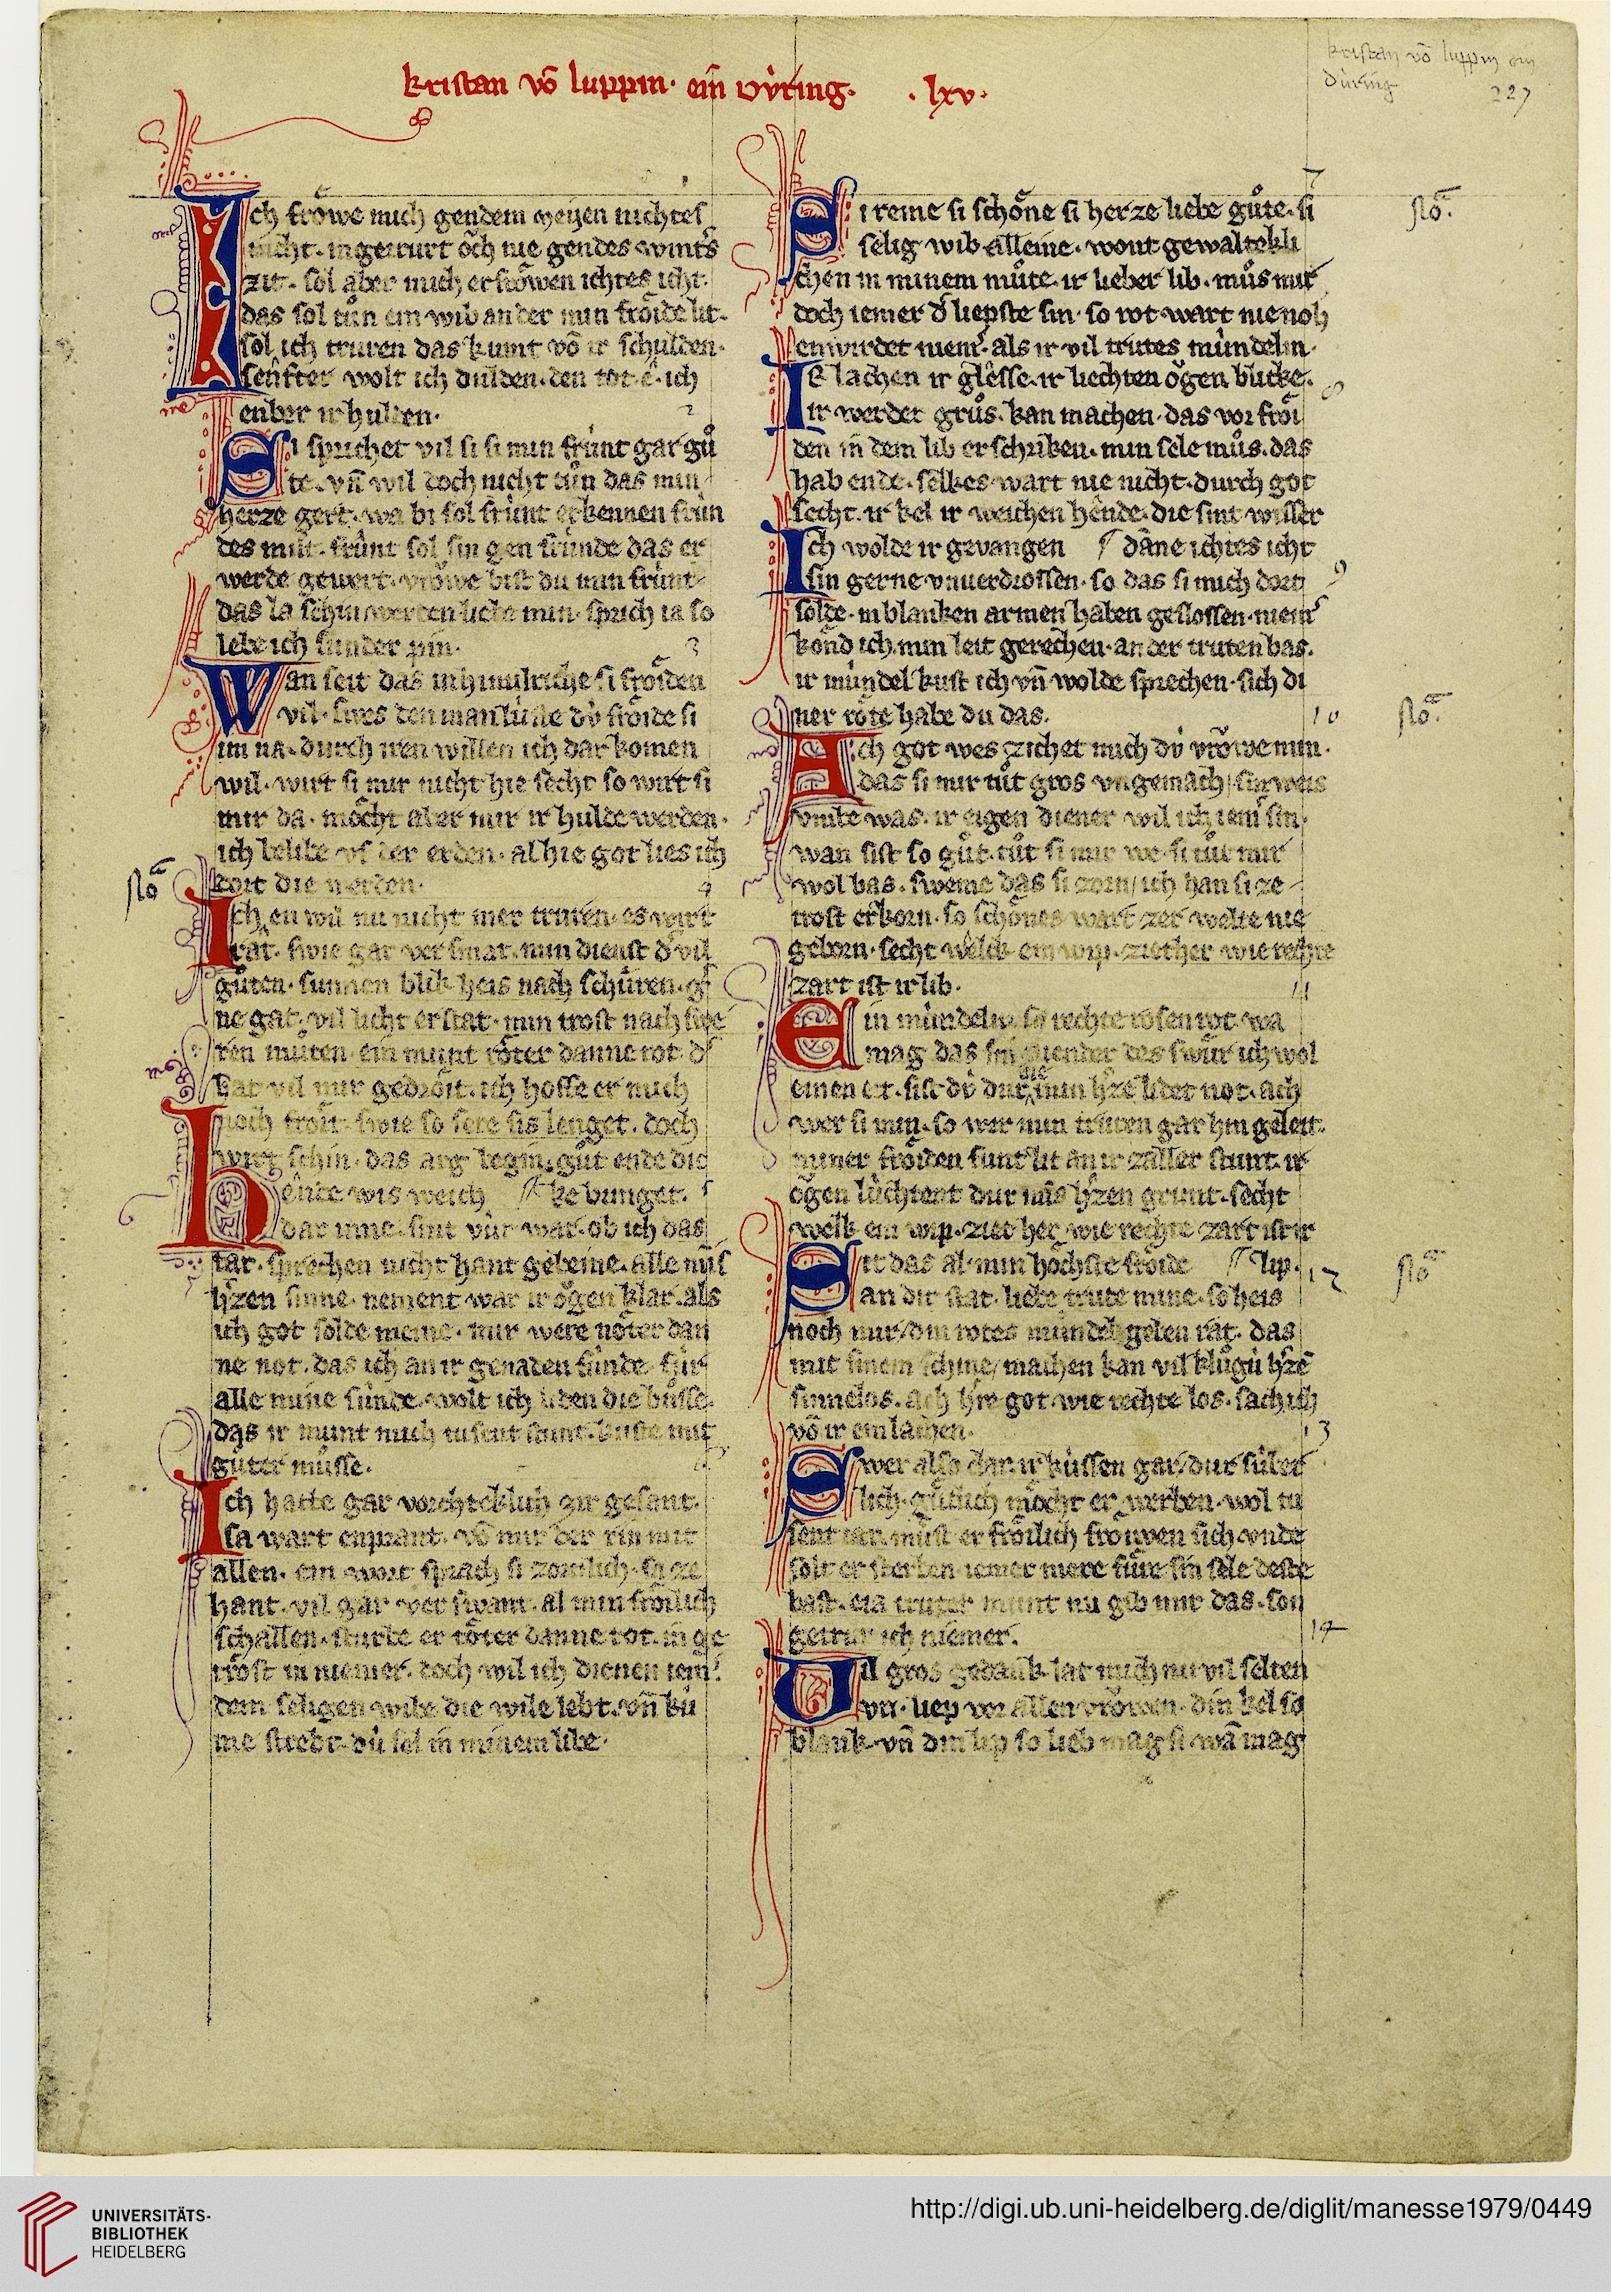 kristan vō luppin· ein Dv̇ring· ·lxv·
kristan vō luppin ein
During 227
Ich frȯ̂we mich gendem meijen nichtes
nicht· in getrurt ôch nie gendes wint's
zit· sol aber mich erfrôwen ichtes icht·
das sol tůn ein wib an der min frôide lit·
sol ich truren das kumt vō ir schulden·
senfter wolt ich dulden· den tot ê· ich
enber ir hulden·
2
Si sprichet vil si si min frúnt gar gů
te· vn̄ wil doch nicht tůn das min
herze gert· wa bi sol frúnt erkennen frún
des můt· frúnt sol sin gen frúnde das er
werde gewert· vrôwe bist du min frúnt·
das la schin werden liebe min· sprich ia so
lebe ich sunder pin·
3
Wan seit das in himilriche si frôiden
vil· swes den man lúste dú frôide si
im na· durch iren willen ich dar komen
wil· wirt si mir nicht hie secht so wirt si
mir da· môcht aber mir ir hulde werden·
ich belibe vf der erden· al hie got lies ich
dort die werden·
4
Ich en wil nu nicht mer truren· es wirt
rat· swie gar versmat· min dienst d' vil
gůten· sunnen blik heis nach schúren· g'
ne gat· vil licht erstat· min trost nach swe
ren můten· ein munt rôter danne rot· d'
hat vil mir gedrôit· ich hoffe er mich
noch frôit· swie so sere sis lenget· doch
wirt schin· das arg begin· gůt ende die
Hende wis weich ke bringet·
dar inne· sint vúr war· ob ich das
tar· sprechen nicht hant gebeine· alle mī's
h'zen sinne· nement war ir ôgen klar· als
ich got solde meine· mir were nôter dan
ne not· das ich an ir genaden fúnde· fúr
alle mine súnde· wolt ich liden die bůsse·
das ir munt mich tusent stunt· kuste mit
gůter můsse·
Ich hatte gar vorchteklich zir gesant·
sa wart enprant· vō mir der rin mit
allen· ein wort sprach si zornlich· sa ze
hant· vil gar verswant· al min frôilich
schallen· sturbe er rôter danne rot· in ge
trôst in niemer· doch wil ich dienen iem'·
dem seligen wibe die wile lebt· vn̄ kú
me strebt· dú sel in minem libe·
7
Si reine si schône si herze liebe gůte· si
selig wib alleine· wont gewaltekli
chen in minem můte· ir lieber lib· můs mir
doch iemer d' liepste sin· so rot wart nie noh
enwirdet niem'· als ir vil trutes múndelin·
Ir lachen ir glêsse· ir liechten ôgen blicke·
ir werder grůs· kan machen· das vor frôi
den in dem lib erschriken· min sele můs· das
hab ende· selkes wart nie nicht· durch got
secht· ir kel ir weichen hênde· die sint wisser
Ich wolde ir gevangen dâne ichtes icht
sin gerne vnuerdrossen· so das si mich dort
9
solde· in blanken armen haben geslossen· niem'
kônd ich min leit gerechen· an der truten bas·
ir múndel kust ich vn̄ wolde sprechen· sich di
ner rôte habe du das·
10
Ach got wes zichet mich dú vrôwe min·
das si mir tůt gros vngemach· sin weis
vmbe was· ir eigen diener wil ich iem' sin·
wan sist so gůt· tůt si mir we· si tůt mir
wol bas· sweme das si zorn/ ich han si ze
trost erkorn· so schônes wart zer welte nie
geborn· secht welch ein wip· ziether wie rechte
zart ist ir lib·
11
Ein múndelin so rechte rosen rot· wa
mag das sin niender des swůr ich wol
einen eit· sist dú dur die min h'ze lidet not· ach
wer si min· so wer min truren gar hin geleit·
miner frôiden funt lit an ir zaller stunt· ir
ôgen lúchtent dur mīs h'zen grunt· secht
welk ein wip· ziet her wie rechte zart ist ir
Sit das al min hôchste frôide lip·
12
an dir stat· liebe trute mine· so heis
noch mir/ din rotes múndel gelen rat· das
mit sinem schine/ machen kan vil klůgú h'ze
sinnelos· ach h're got· wie rechte los· sach ich
vō ir ein lachen·
13
Swer also dar· ir kússen gar/ dur súber
lich· gůtlich môcht er werben· wol tu
sent iar· můst er frôilich frowen sich· vnde
solt er sterben iemer mere fůre sin sele deste
bas· eia truter munt nu gib mir das· son
getrur ich niemer·
14
Vil gros gedank lat mich nu vil selten
vri· liep vor allen vrôwen· din kel so
blank· vn̄ din lip so lieb mag si wā mag
UNIVERSITÄTS-
BIBLIOTHEK
HEIDELBERG
http://digi.ub.uni-heidelberg.de/diglit/manesse1979/0449